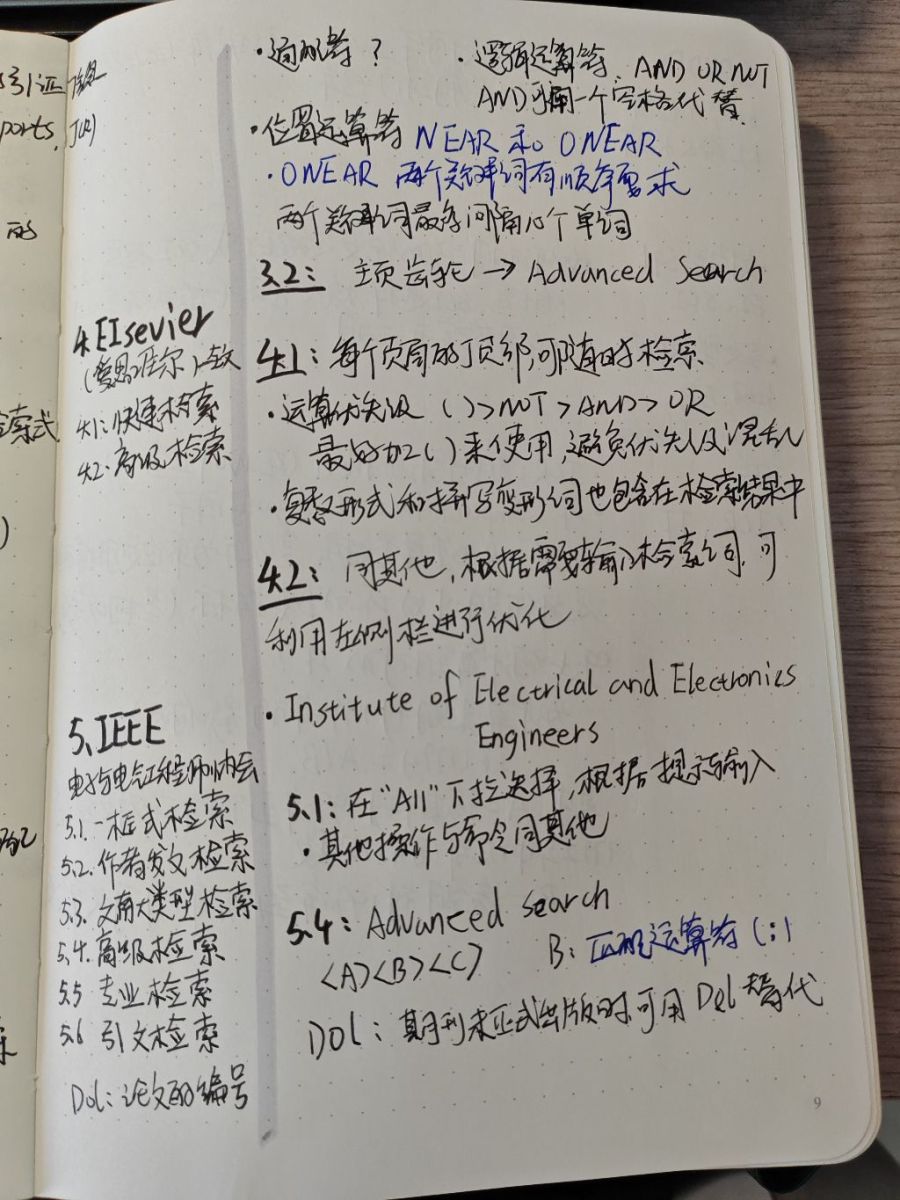 引证
ports, J(R)
的
索式
)
4.EIsevier
(爱思唯尔)一致
4.1:快速检索
4.2:高级检索
5、IEEE
电子与电气工程师协会
5.1.一框式检索
5.2.作者发文检索
5.3.文献类型检索
5.4.高级检索
5.5 专业检索
5.6 引文检索
DoL:论文的编号
·通配符?
·逻辑运算符、AND OR NOT
AND可用一个空格代替
·位置运算符 NEAR 和 ONEAR
·ONEAR 两个关键词有顺序要求
两个关键词最多间隔几个单词
3.2: 主页齿轮→Advanced Search
4.1:每个页面的顶部,可随时检索
·运算优先级 ()>NOT>AND>OR
最好加()来使用,避免优先级混乱
·复数形式和拼写变形词也包含在检索结果中
4.2: 同其他,根据需要输入检索词,可
利用左侧栏进行优化
·Institute of Electrical and Electronics
Engineers
5.1:在"All"下拉选择,根据提示输入
·其他操作与命令同其他
5.4:Advanced search
<A><B><C> B:匹配运算符(:)
DOL:期刊未正式出版时,可用DOL替代
9